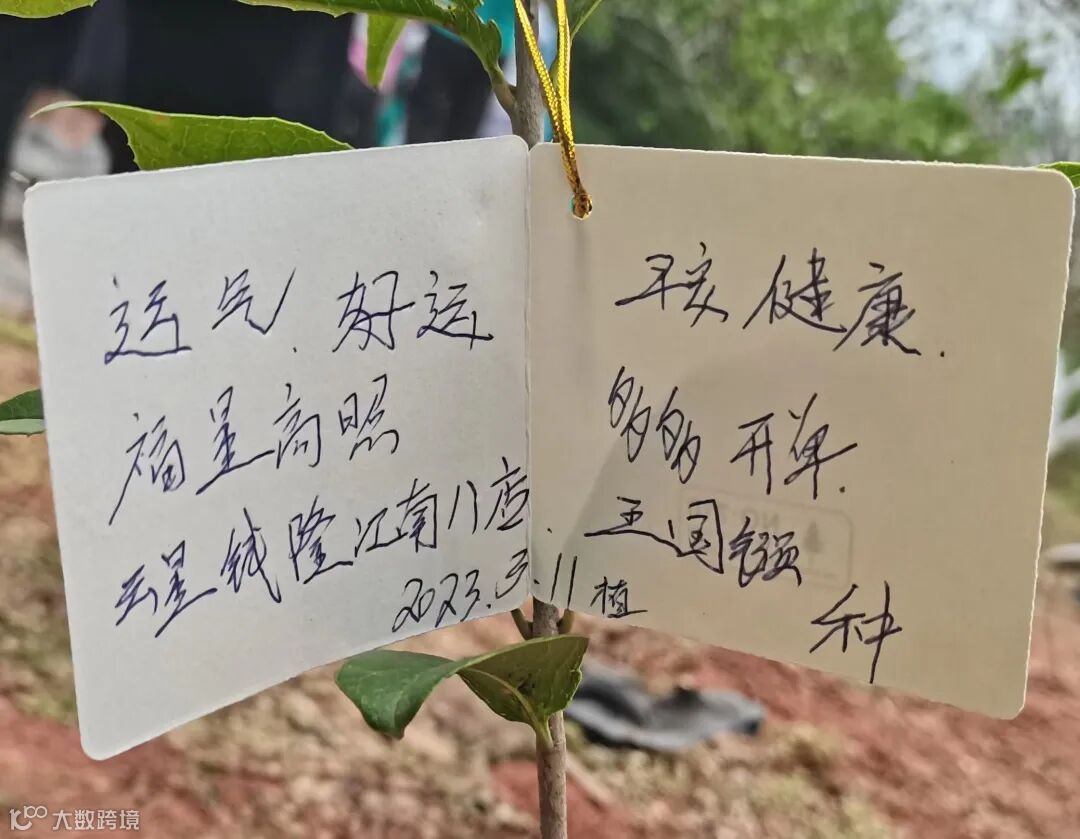 运气、好运
福星高照
云星钱隆江南八店.
2023.3.11 植
健康.
多多开单.
王国
种
大数跨境